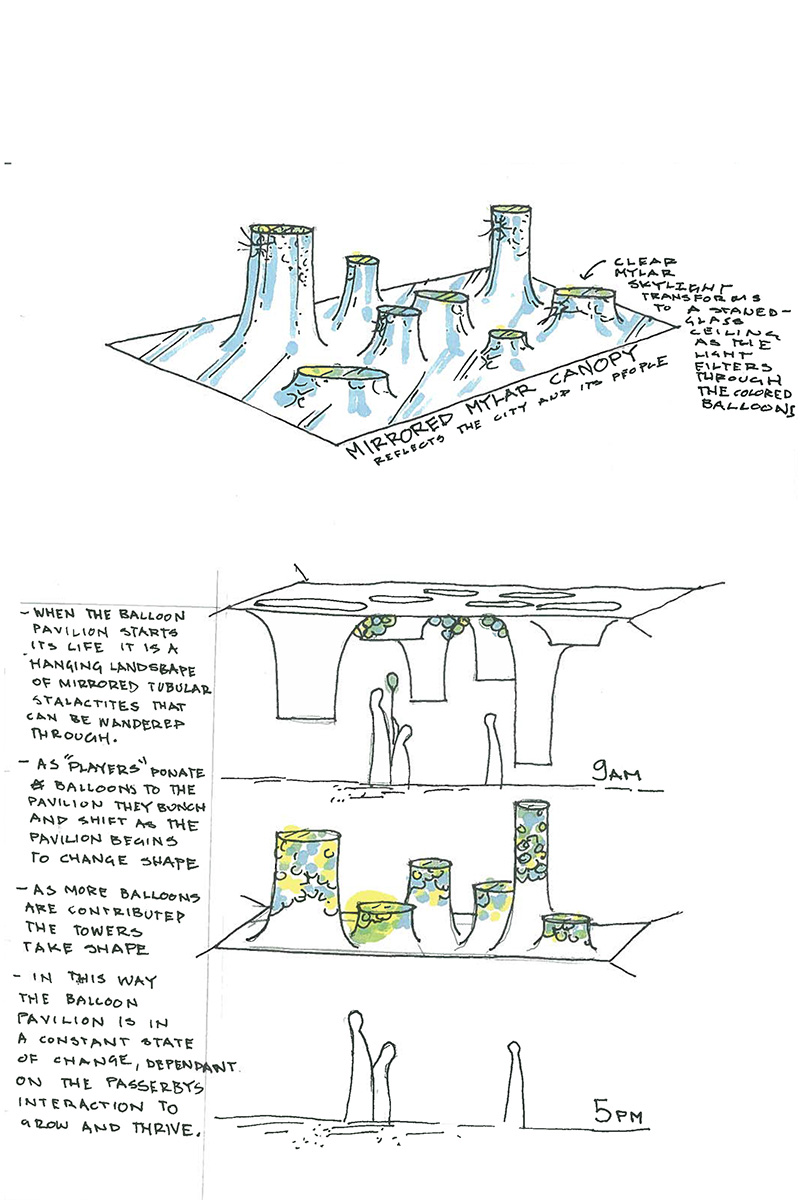 CLEAR
MYLAR
SKYLIGHT
TRANSFORMS
TO A STANED-
GLASS
CEILING
AS THE
LIGHT
FILTERS
THROUGH
THE COLORED
BALLOONS
MIRRORED MYLAR CANOPY
REFLECTS THE CITY AND ITS PEOPLE
- WHEN THE BALLOON
PAVILION STARTS
ITS LIFE IT IS A
HANGING LANDSBAPE
OF MIRRORED TUBULAR
STALACTITES THAT
CAN BE WANDERED
THROUGH.
- AS "PLAYERS" DONATE
BALLOONS TO THE
PAVILION THEY BUNCH
AND SHIFT AS THE
PAVILION BEGINS
TO CHANGE SHAPE
- AS MORE BALLOONS
ARE CONTRIBUTED
THE TOWERS
TAKE SHAPE
- IN THIS WAY
THE BALLOON
PAVILION IS IN
A CONSTANT STATE
OF CHANGE, DEPENDANT
ON THE PASSERBYS
INTERACTION TO
GROW AND THRIVE.
9AM
5PM